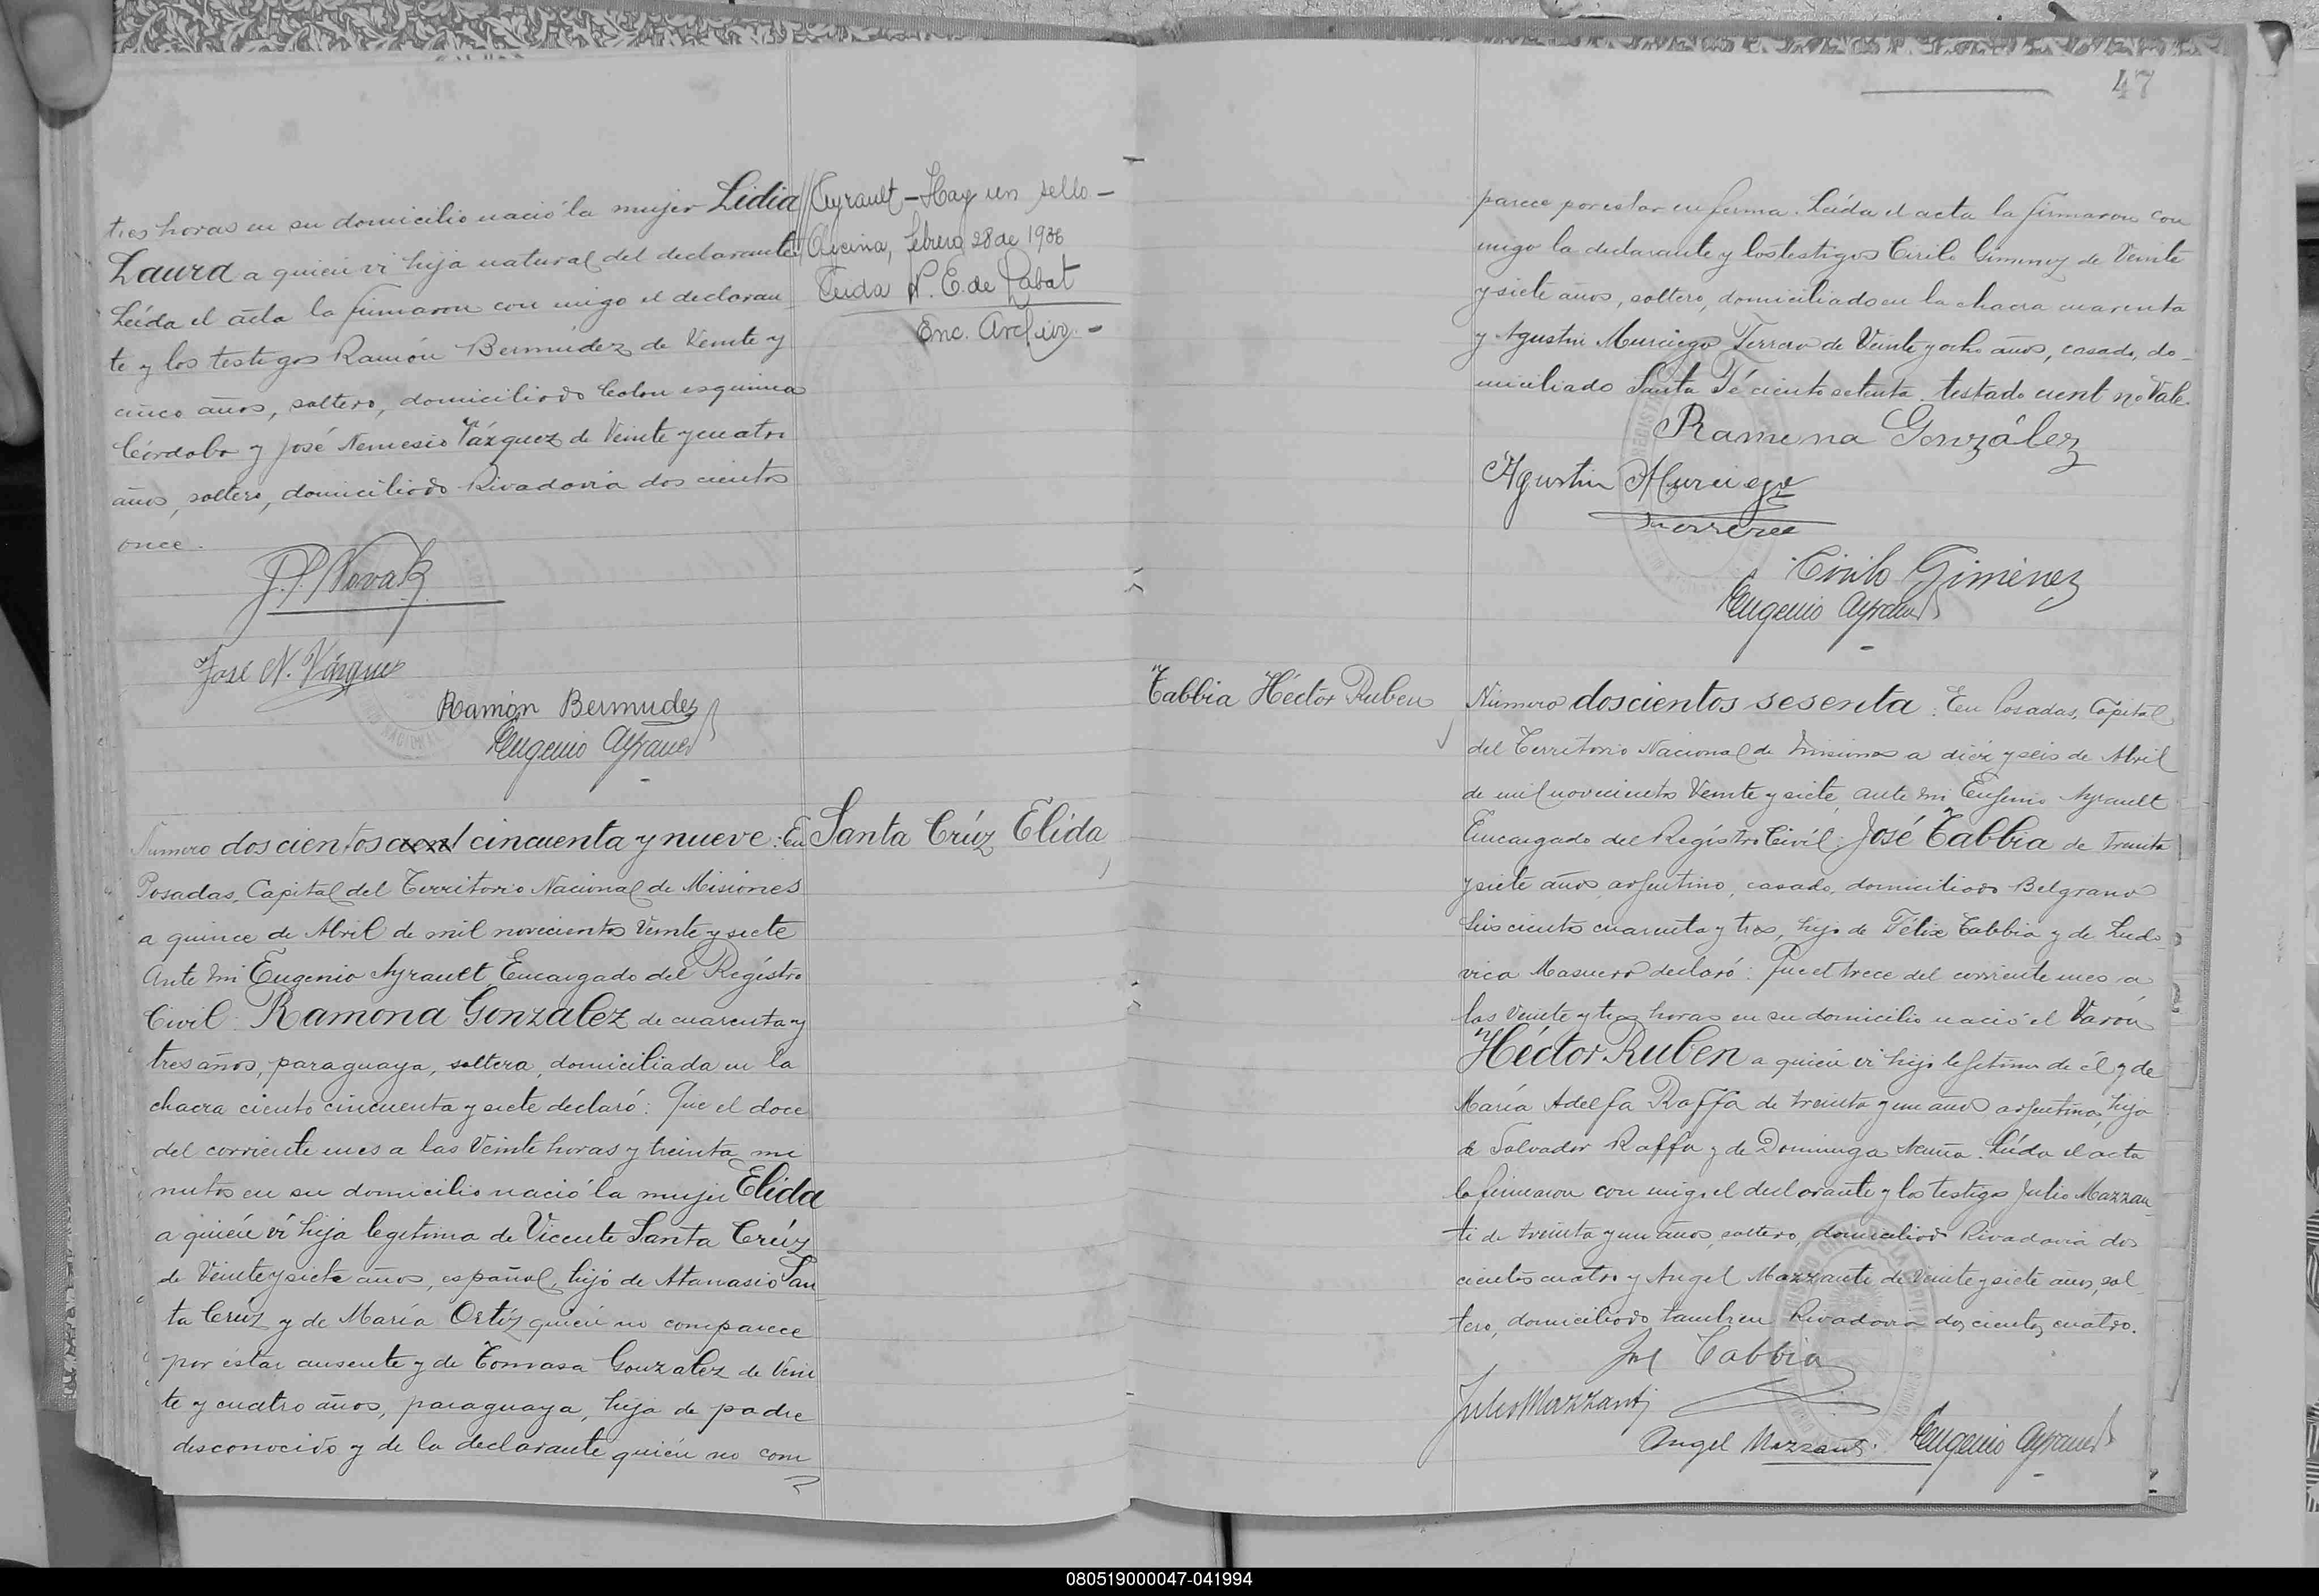 tres horas en su domicilio nació la mujer Lidia
Laura a quien vi hija natural del declarante
Leída el acta la firmaron con migo el declaran
te y los testigos Ramón Bermúdez de Veinte y
cinco años, soltero, domiciliado Colon esquina
Córdoba y José Nemesio Vázquez de Veinte y cuatro
años, soltero, domiciliado Rivadavia dos cientos
once.
José N. Vázquez
Ramón Bermudez
Eugenio Ayrault
Ayrault - Hay un sello -
Oficina, Febrero 28 de 1936
N. E. de Labat
Enc. Archivo -
Numero doscientos cient cincuenta y nueve: En
Posadas, Capital del Territorio Nacional de Misiones
a quince de Abril de mil novecientos Veinte y siete
Ante mi Eugenio Ayrault Encargado del Registro
Civil: Ramona Gonzalez de cuarenta y
tres años, paraguaya, soltera, domiciliada en la
chacra ciento cincuenta y siete declaró: Que el doce
del corriente mes a las Veinte horas y treinta mi
nutos en su domicilio nació la mujer Elida
a quién ví hija legitima de Vicente Santa Crúz
de Veinte y siete años, español, hijo de Atanasio San
ta Crúz y de María Ortíz quién no comparece
por estar ausente y de Tomasa Gonzalez de Vein
te y cuatro años, paraguaya, hija de padre
desconocido y de la declarante quién no com
Santa Crúz Elida
47
parece por estar enferma. Leída el acta la firmaron con
migo la declarante y los testigos Cirilo Gimenez de Veinte
y siete años, soltero, domiciliado en la chacra cuarenta
y Agustin Murciego Ferrero de Veinte y ocho años, casado, do-
miciliado Santa Fé ciento setenta. testado cient no Vale.
Ramona González
Agustin Murciego
Cirilo Giménez
Eugenio Ayrault
Tabbia Héctor Ruben
Número doscientos sesenta: En Posadas, Capital
del Territorio Nacional de Misiones a diez y seis de Abril
de mil novecientos Veinte y siete, ante mi Eugenio Ayrault
Encargado del Registro Civil: José Tabbia de treinta
y siete años, argentino, casado, domiciliado Belgrano
Seis ciento cuarenta y tres, hijo de Félix Tabbia y de Ludo
vica Masuero declaró: Que el trece del corriente mes a
las Veinte y tres horas en su domicilio nació el Varón
Héctor Ruben a quién ví hijo legitimo de él y de
María Adelfa Raffa de treinta y un años argentina, hija
de Salvador Raffa y de Dominga Acuña. Leída el acta
la firmaron con migo el declarante y los testigos Julio Mazzan
ti de treinta y un años, soltero, domiciliado Rivadavia dos
cientos cuatro y Angel Mazzanti de Veinte y siete años, sol
tero, domiciliado tambien Rivadavia dos cientos cuatro.
José Tabbia
Julio Mazzanti
Angel Mazzanti
Eugenio Ayrault
080519000047-041994